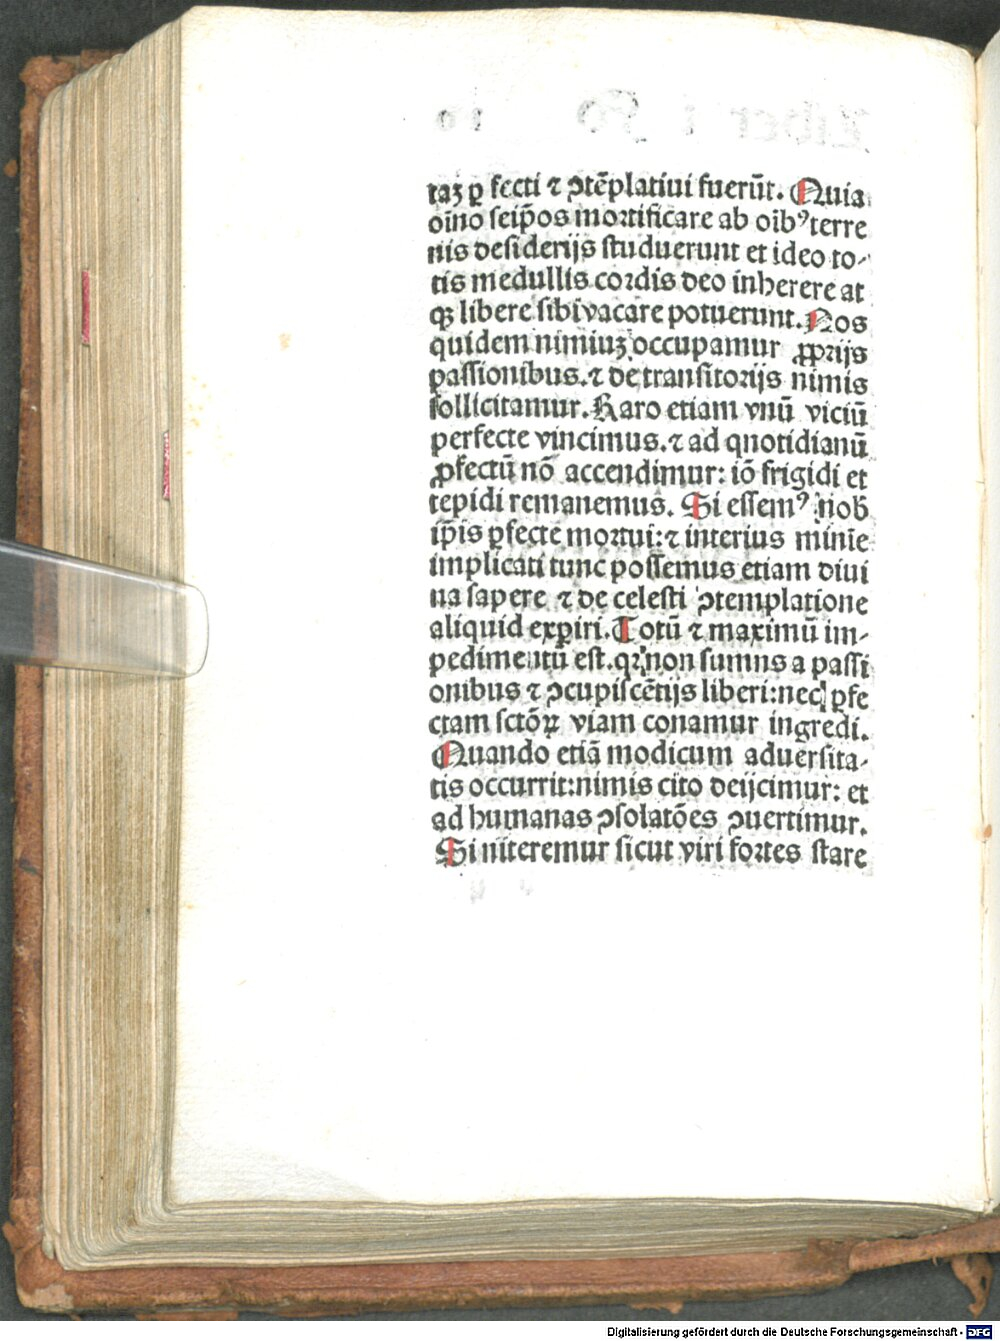 taʒ ꝑ fecti ⁊ ꝯtēplatiui fuerūt. Quia
oīno seip̄os mortificare ab oībꝰ terre
nis desiderijs studuerunt et ideo to-
tis medullis cordis deo inherere at
qꝫ libere sibi vacare potuerunt. Nos
quidem nimiuʒ occupamur ꝓprijs
passionibus. ⁊ de transitorijs nimis
sollicitamur. Raro etiam vnū viciū
perfecte vincimus. ⁊ ad quotidianū
ꝓfectū nō accendimur: iō frigidi et
tepidi remanemus. Si essemꝰ nob
ip̄is ꝑfecte mortui: ⁊ interius minīe
implicati tunc possemus etiam diui
na sapere ⁊ de celesti ꝯtemplatione
aliquid exꝑiri. Totū ⁊ maximū im-
pedimentū est. qꝛ non sumus a passi
onibus ⁊ ꝯcupiscētijs liberi: nec ꝑfe
ctam sctōꝝ viam conamur ingredi.
Quando etiā modicum aduersita-
tis occurrit: nimis cito deijcimur: et
ad humanas ꝯsolatōes ꝯuertimur.
Si niteremur sicut viri fortes stare
Digitalisierung gefördert durch die Deutsche Forschungsgemeinschaft - DFG